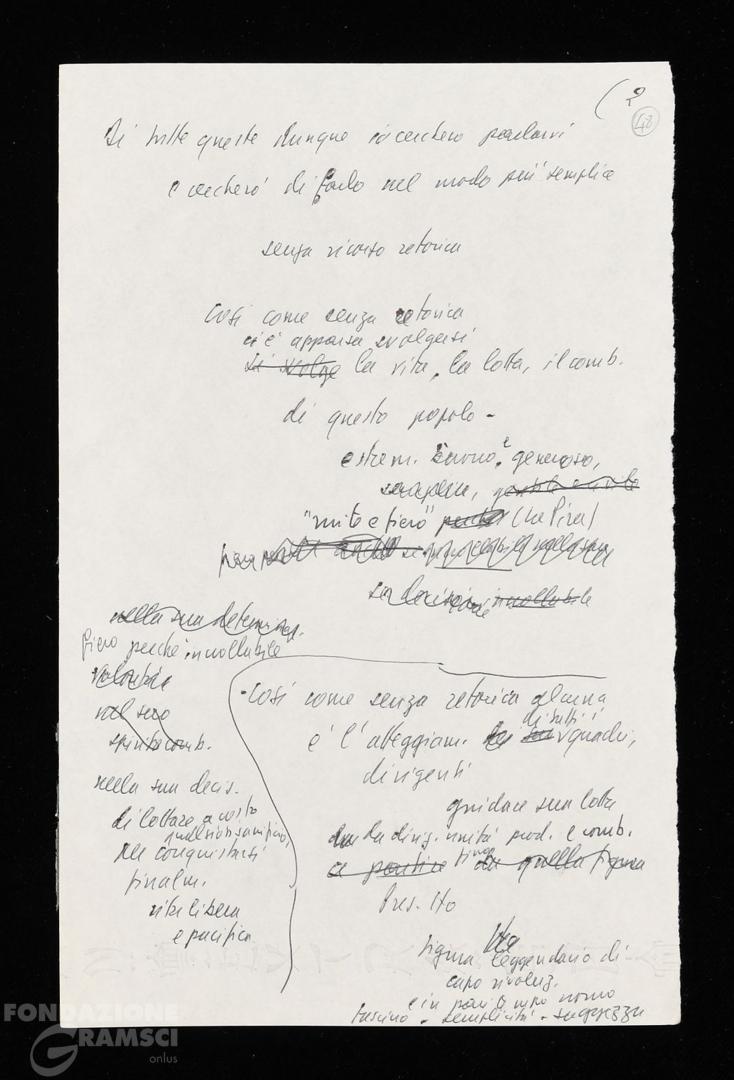 (2
48
Di tutte queste dunque io cercherò parlarvi
e cercherò di farlo nel modo più semplice
senza ricorso retorica
Così come senza retorica
ci è apparsa svolgersi
si svolge la vita, la lotta, il comb.
di questo popolo -
estrem. buono, e generoso,
semplice,
"mite e fiero" (La Pira)
sua decisione incrollabile
nella sua determinaz.
fiero perché incrollabile
volontà
nel suo
spirito comb.
nella sua decis.
di lottare, a costo
qualsiasi sacrificio,
per conquistarsi
finalm.
vita libera
e pacifica
- Così come senza retorica alcuna
è l'atteggiam. di tutti i quadri,
dirigenti
guidare sua lotta
da da dirig. unità prod. e comb.
a partire fino da quella figura
Pres. Ho
figura leggendaria di
capo rivoluz.
e in pari tempo uomo
fascino - semplicità - saggezza
FONDAZIONE
GRAMSCI
onlus